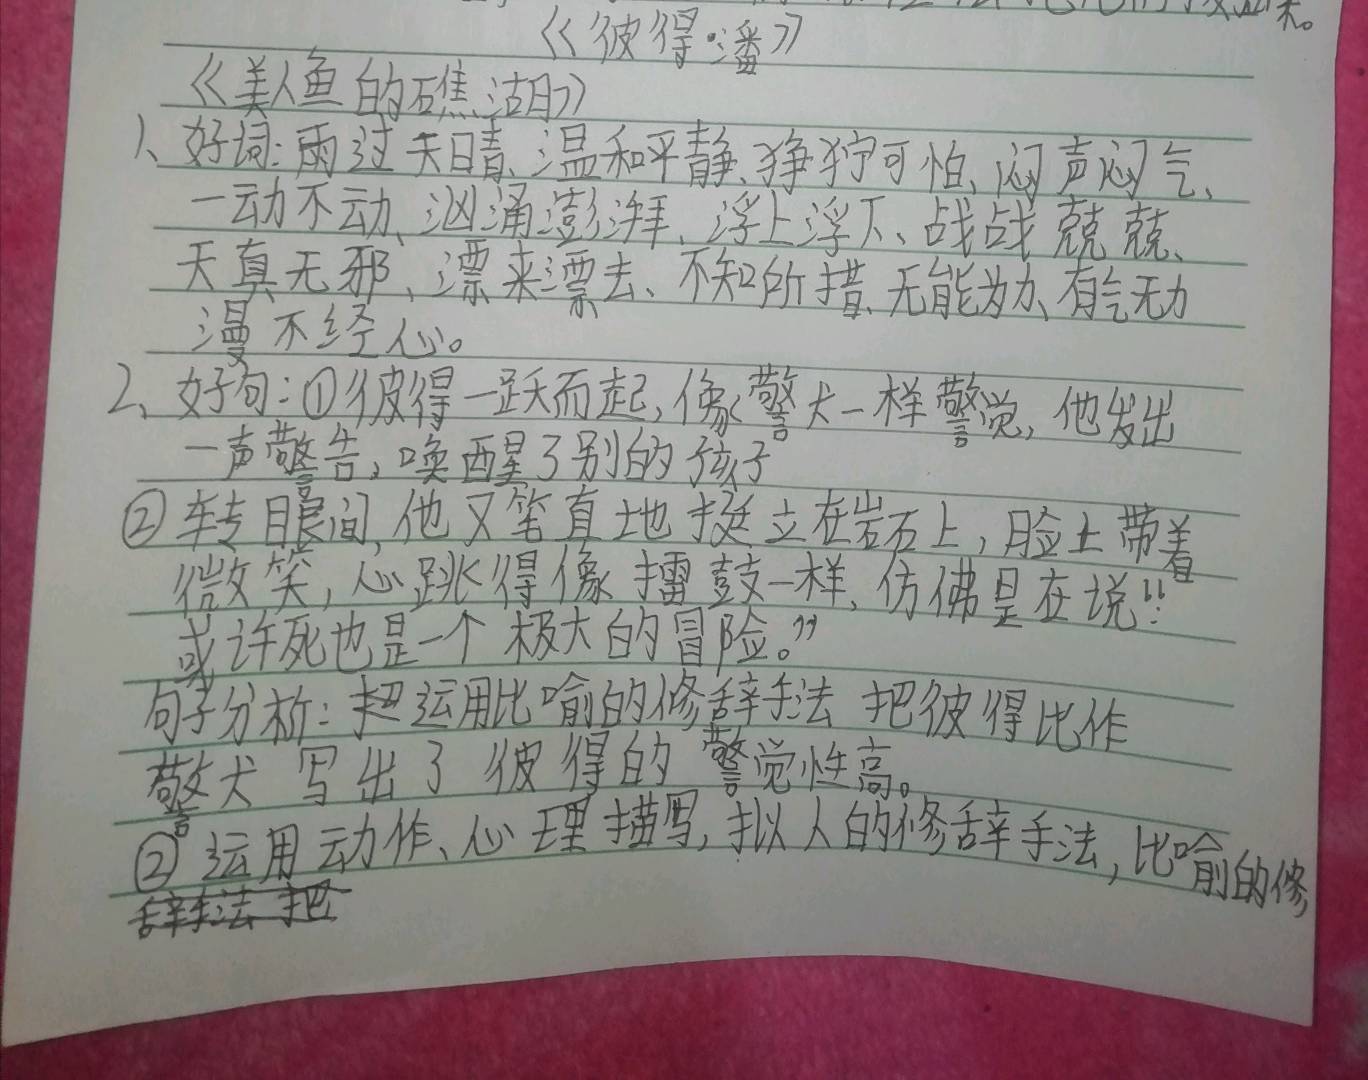 《彼得·潘》
《美人鱼的礁湖》
1、好词:雨过天晴、温和平静、狰狞可怕、闷声闷气、
一动不动、汹涌澎湃、浮上浮下、战战兢兢、
天真无邪、漂来漂去、不知所措、无能为力、有气无力
漫不经心。
2、好句:①彼得一跃而起,像警犬一样警觉,他发出
一声警告,唤醒了别的孩子
②转眼间,他又笔直地挺立在岩石上,脸上带着
微笑,心跳得像擂鼓一样,仿佛是在说:“
或许死也是一个极大的冒险。”
句子分析:把运用比喻的修辞手法 把彼得比作
警犬 写出了彼得的警觉性高。
②运用动作、心理描写,拟人的修辞手法,比喻的修
辞手法 把